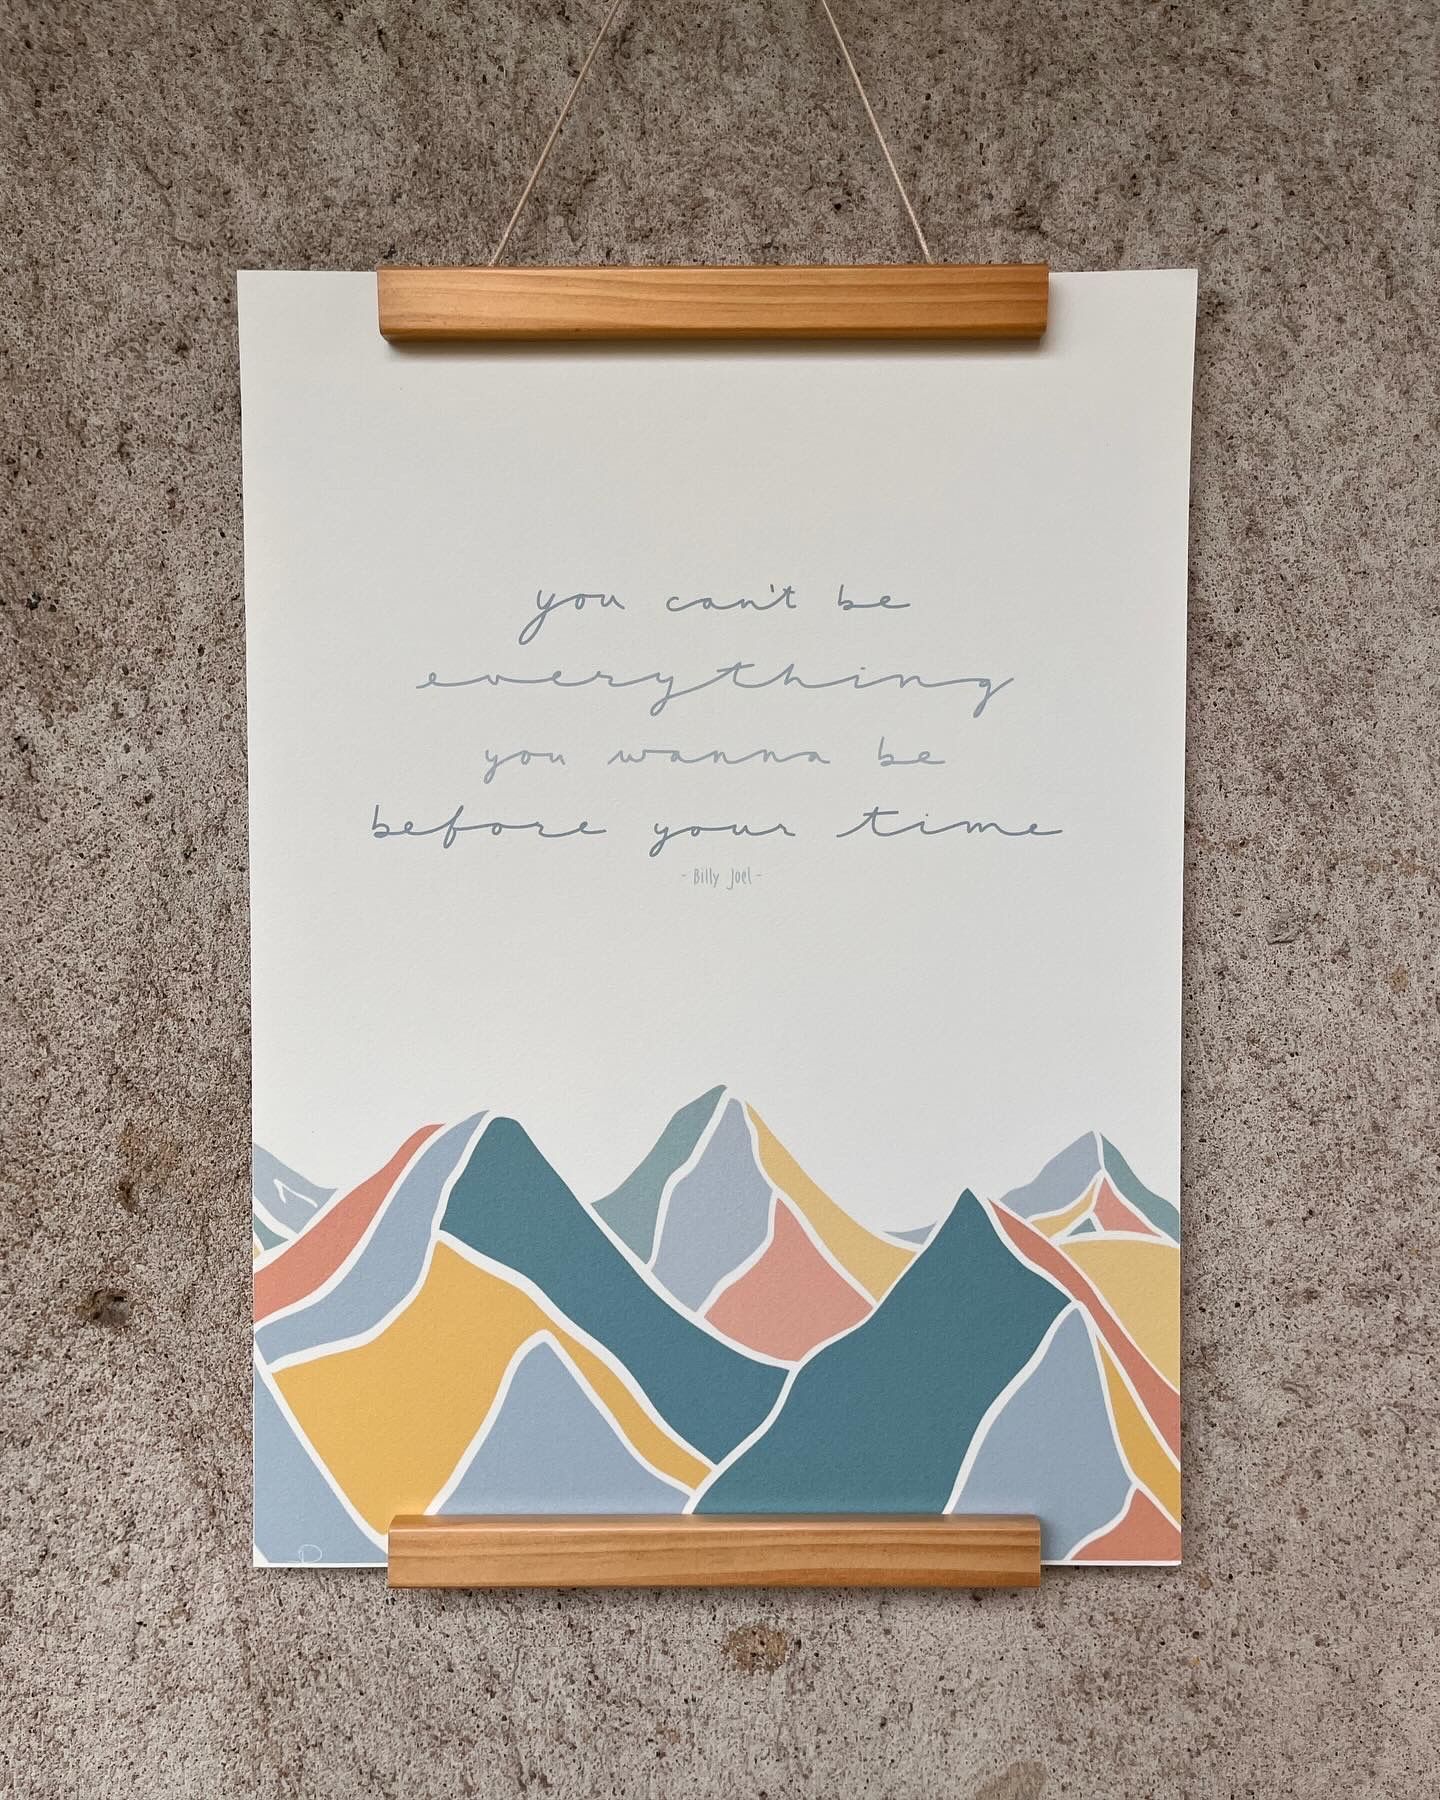 you can't be
everything
you wanna be
before your time
- Billy Joel -